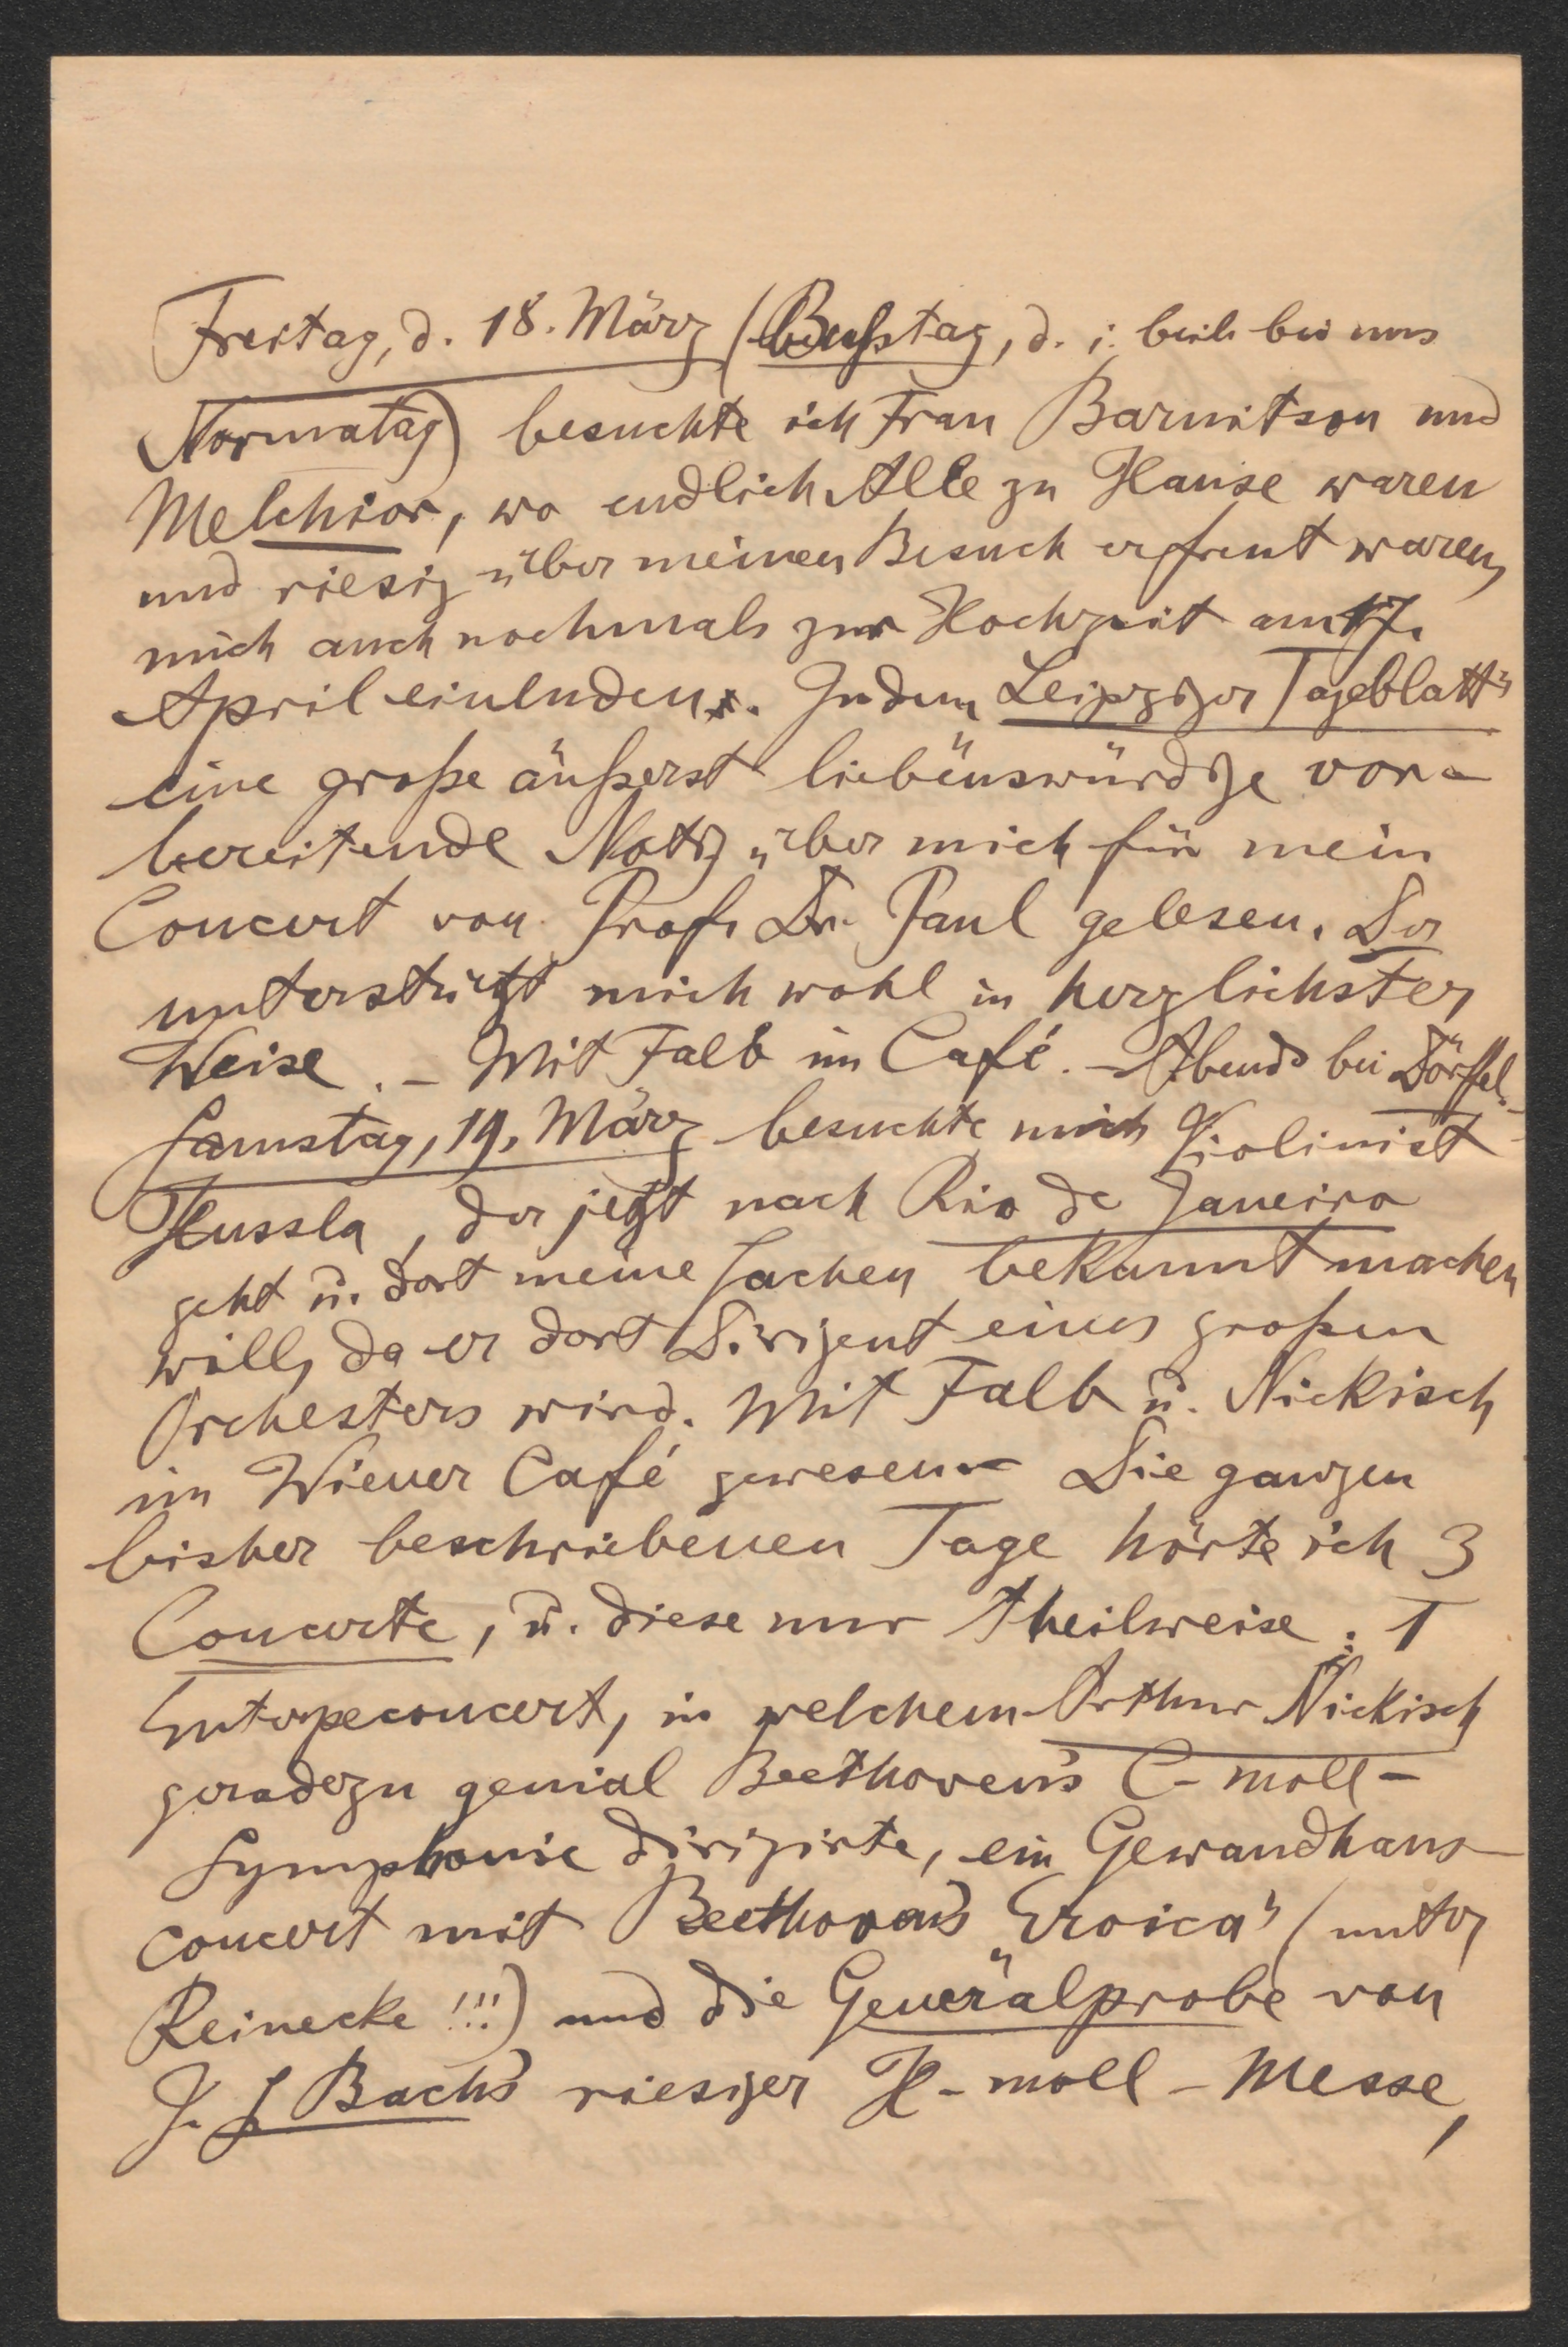 Freitag, d. 18. März (Bußtag, d. i. beil. bei uns
Normatag) besuchte ich Frau Barnitson und
Melchior, wo endlich Alle zu Hause waren
und riesig über meinen Besuch erfreut waren,
mich auch nochmals zur Hochzeit am 17.
April einluden. In dem „Leipziger Tageblatt“
eine große äußerst liebenswürdige vor-
bereitende Notiz über mich für mein
Concert von Prof. Dr. Paul gelesen. Der
unterstützt mich wohl in herzlichster
Weise. – Mit Falb im Café. – Abends bei Dörffel. –
Samstag, 19. März besuchte mich Violinist
Hussla, der jetzt nach Rio de Janeiro
geht u. dort meine Sachen bekannt machen
will, da er dort Dirigent eines großen
Orchesters wird. Mit Falb u. Nickisch
im Wiener Café gewesen. – Die ganzen
bisher beschriebenen Tage hörte ich 3
Concerte, u. diese nur theilweise: 1
Euterpeconcert, in welchem Arthur Nickisch
geradezu genial Beethoven's C-moll-
Symphonie dirigirte, ein Gewandhaus-
concert mit Beethoven's „Eroica“ (unter
Reinecke !!!) und die Generalprobe von
J. S. Bach's riesiger H-moll-Messe,